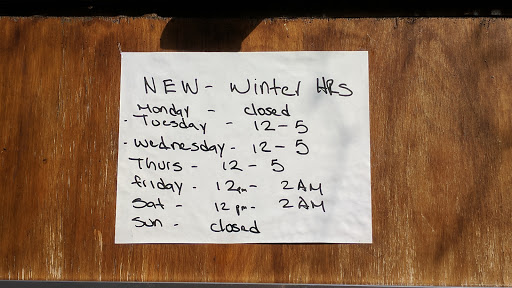 NEW - Winter HRS
Monday - closed
- Tuesday - 12-5
- Wednesday - 12-5
Thurs - 12-5
friday - 12pm - 2AM
Sat - 12pm - 2AM
Sun - closed